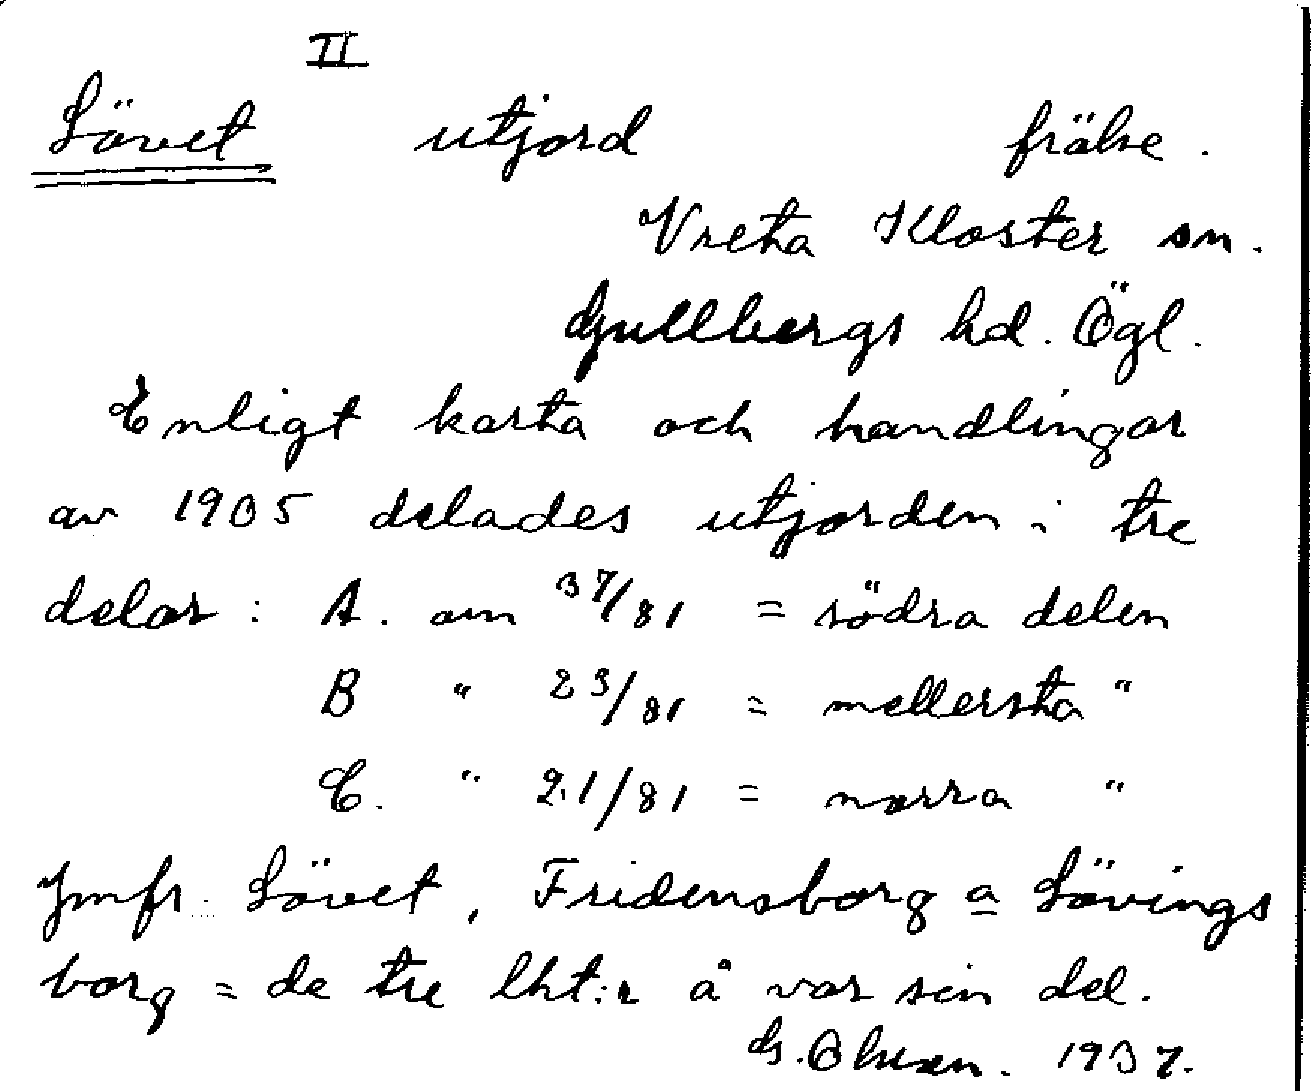 II
Lövet utjord frälse.
Vreta Kloster sn.
Gullbergs hd. Ögl.
Enligt karta och handlingar
av 1905 delades utjorden i tre
delar: A. om 37/81 = södra delen
B " 23/81 = mellersta "
C. " 21/81 = norra "
Jmfr. Lövet, Fridensborg a Lövings
borg = de tre lht:r å var sin del.
G. Olsson. 1937.